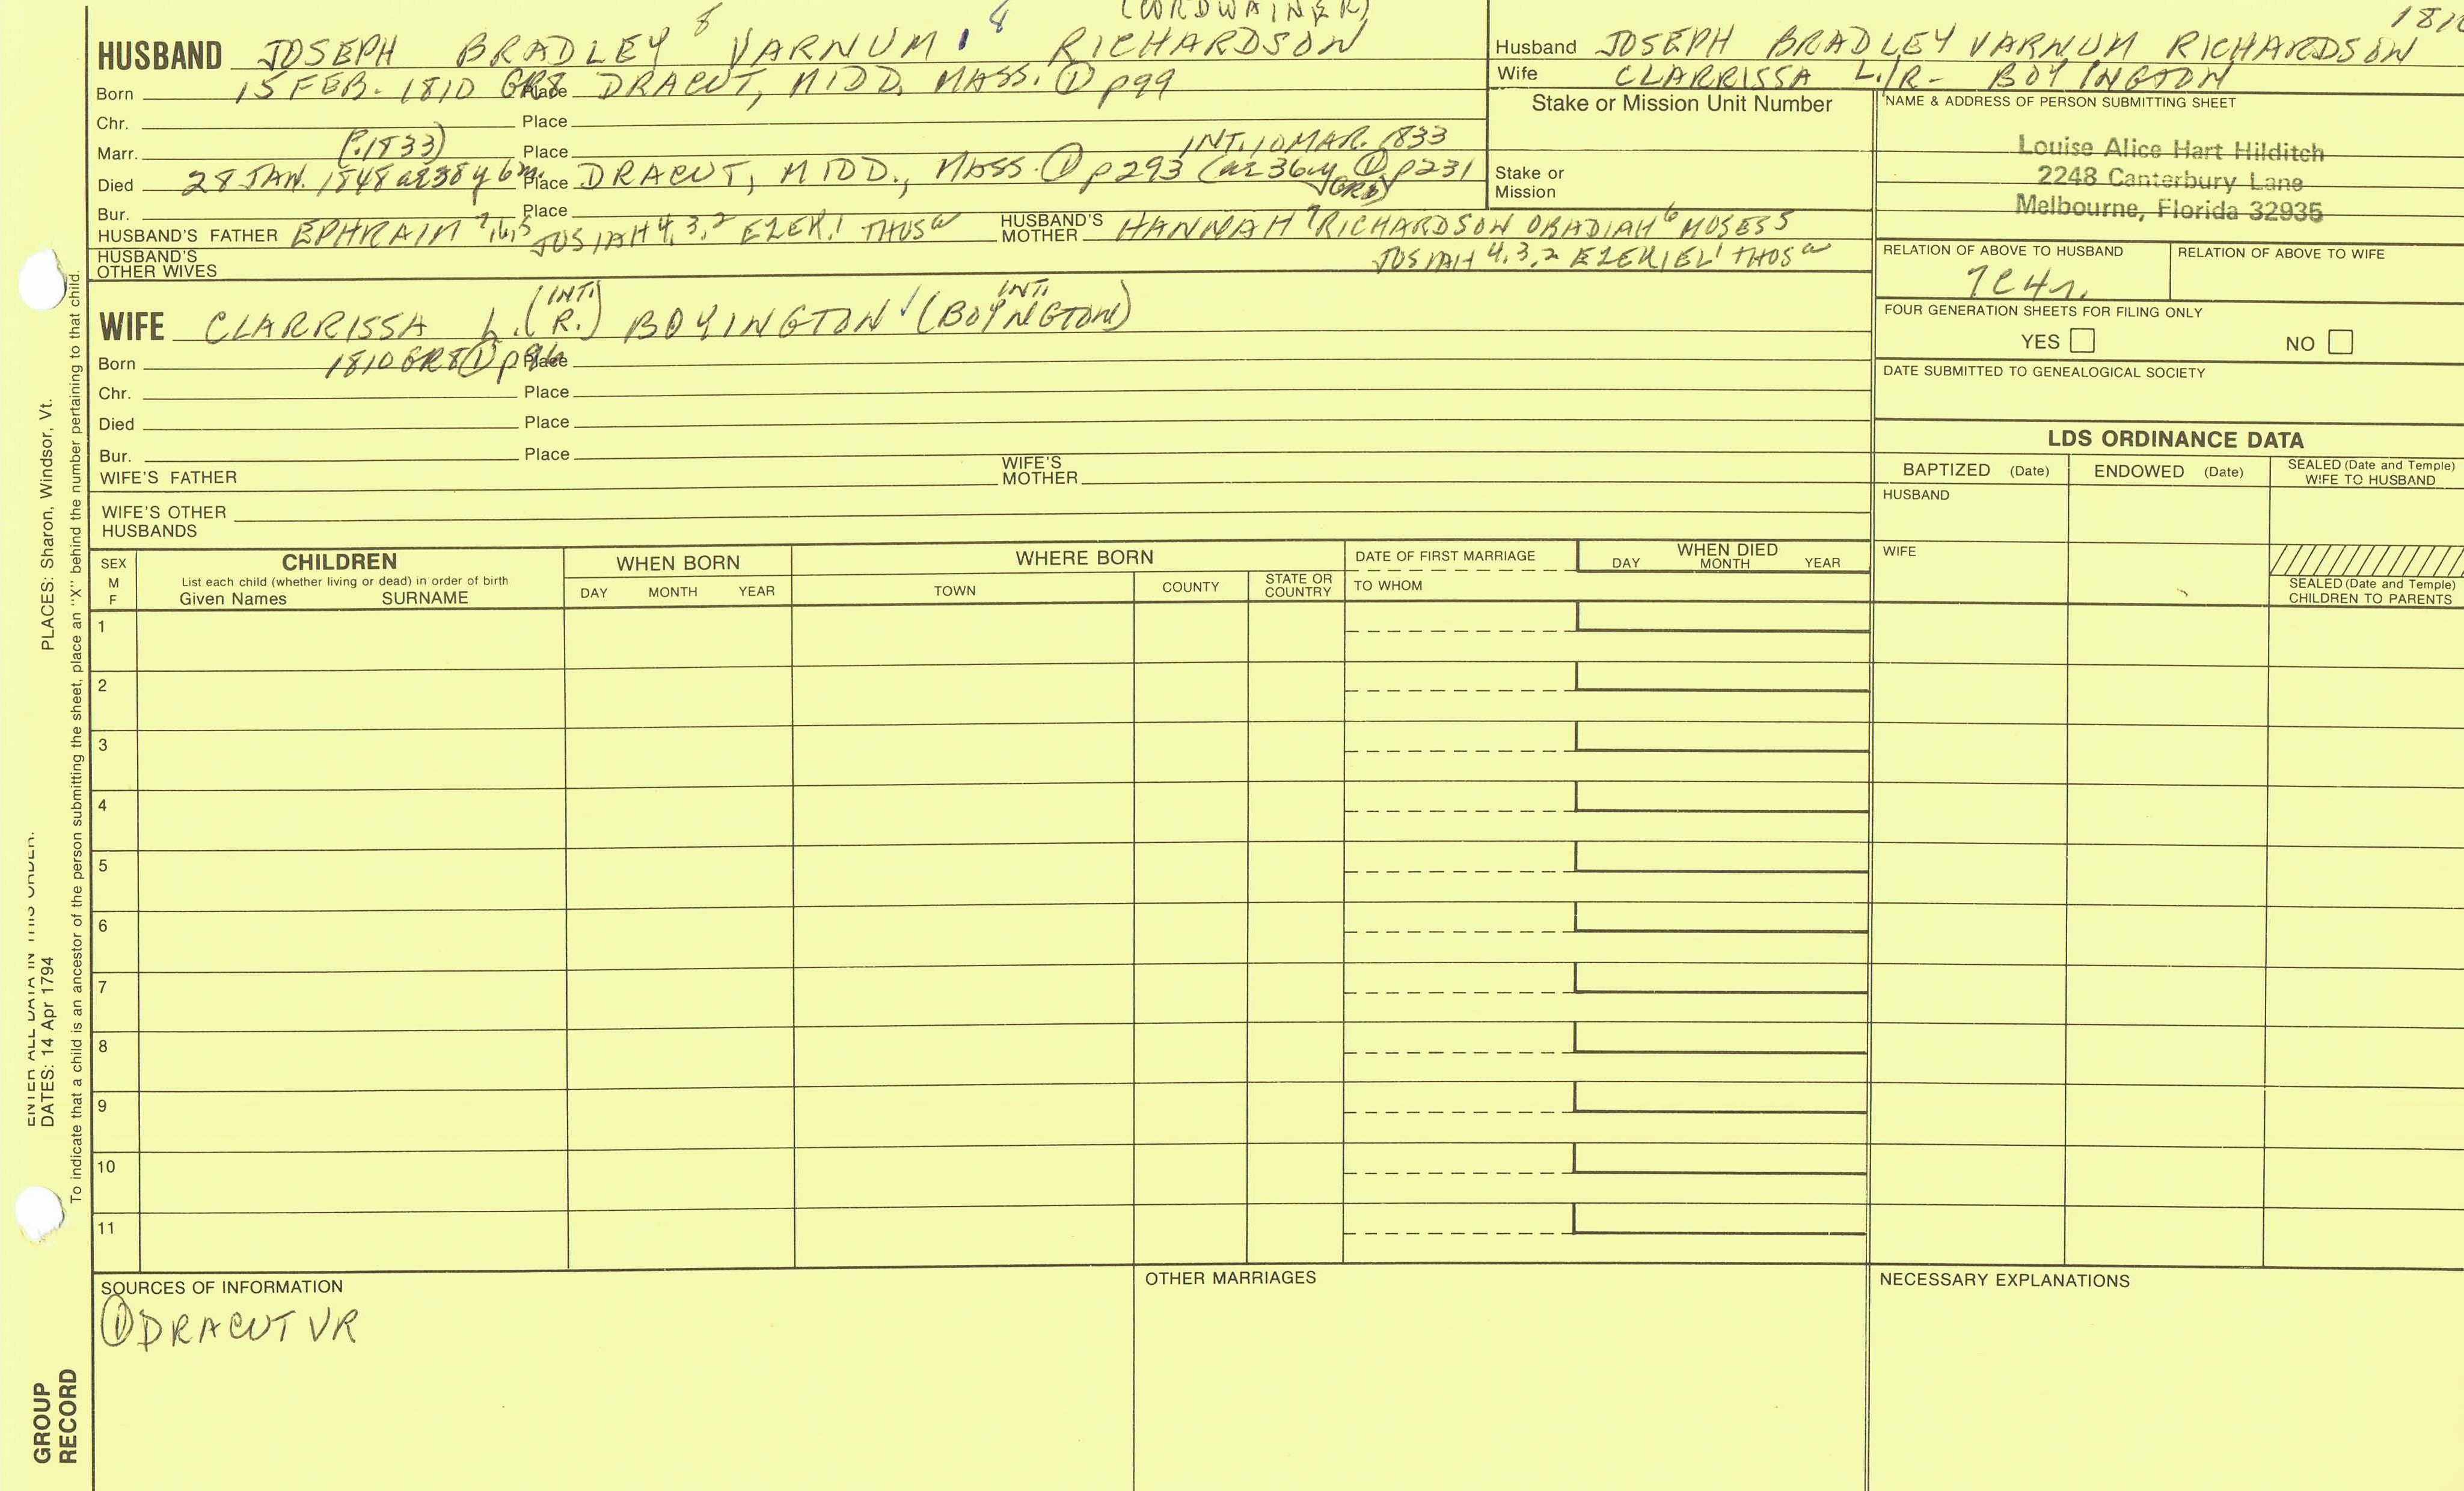 (CORDWAINER)
1810
HUSBAND JOSEPH BRADLEY 8 VARNUM 8 RICHARDSON
Born 15 FEB. 1810 GR8 Place DRACUT, MIDD. MASS. ① p99
Chr. Place
Marr. (?.1833) Place INT. 10 MAR. 1833
Died 28 JAN. 1848 ae 38 y 6m. Place DRACUT, MIDD., MASS. ① p293 (ae 36y GR8) ① p231
Bur. Place
HUSBAND'S FATHER EPHRAIM 7,6,5 JOSIAH 4,3,2 EZEK.1 THOS a
HUSBAND'S MOTHER HANNAH 7 RICHARDSON OBADIAH 6 MOSES 5
JOSIAH 4,3,2 EZEKIEL 1 THOS a
HUSBAND'S OTHER WIVES
WIFE CLARRISSA L. (INT. R.) BOYINGTON (BOYNGTON INT.)
Born 1810 GR8 ① p96 Place
Chr. Place
Died Place
Bur. Place
WIFE'S FATHER WIFE'S MOTHER
WIFE'S OTHER HUSBANDS
Husband JOSEPH BRADLEY VARNUM RICHARDSON
Wife CLARRISSA L./R- BOYINGTON
Stake or Mission Unit Number
Stake or Mission
NAME & ADDRESS OF PERSON SUBMITTING SHEET
Louise Alice Hart Hilditch
2248 Canterbury Lane
Melbourne, Florida 32935
RELATION OF ABOVE TO HUSBAND RELATION OF ABOVE TO WIFE
7C4r.
FOUR GENERATION SHEETS FOR FILING ONLY
YES NO
DATE SUBMITTED TO GENEALOGICAL SOCIETY
LDS ORDINANCE DATA
BAPTIZED (Date) ENDOWED (Date) SEALED (Date and Temple) WIFE TO HUSBAND
HUSBAND
WIFE
SEALED (Date and Temple) CHILDREN TO PARENTS
SEX M F
CHILDREN
List each child (whether living or dead) in order of birth
Given Names SURNAME
WHEN BORN
DAY MONTH YEAR
WHERE BORN
TOWN COUNTY STATE OR COUNTRY
DATE OF FIRST MARRIAGE
TO WHOM
WHEN DIED
DAY MONTH YEAR
1
2
3
4
5
6
7
8
9
10
11
SOURCES OF INFORMATION
① DRACUT VR
OTHER MARRIAGES
NECESSARY EXPLANATIONS
ENTER ALL DATA IN THIS ORDER:
DATES: 14 Apr 1794 PLACES: Sharon, Windsor, Vt.
To indicate that a child is an ancestor of the person submitting the sheet, place an "X" behind the number pertaining to that child.
GROUP
RECORD